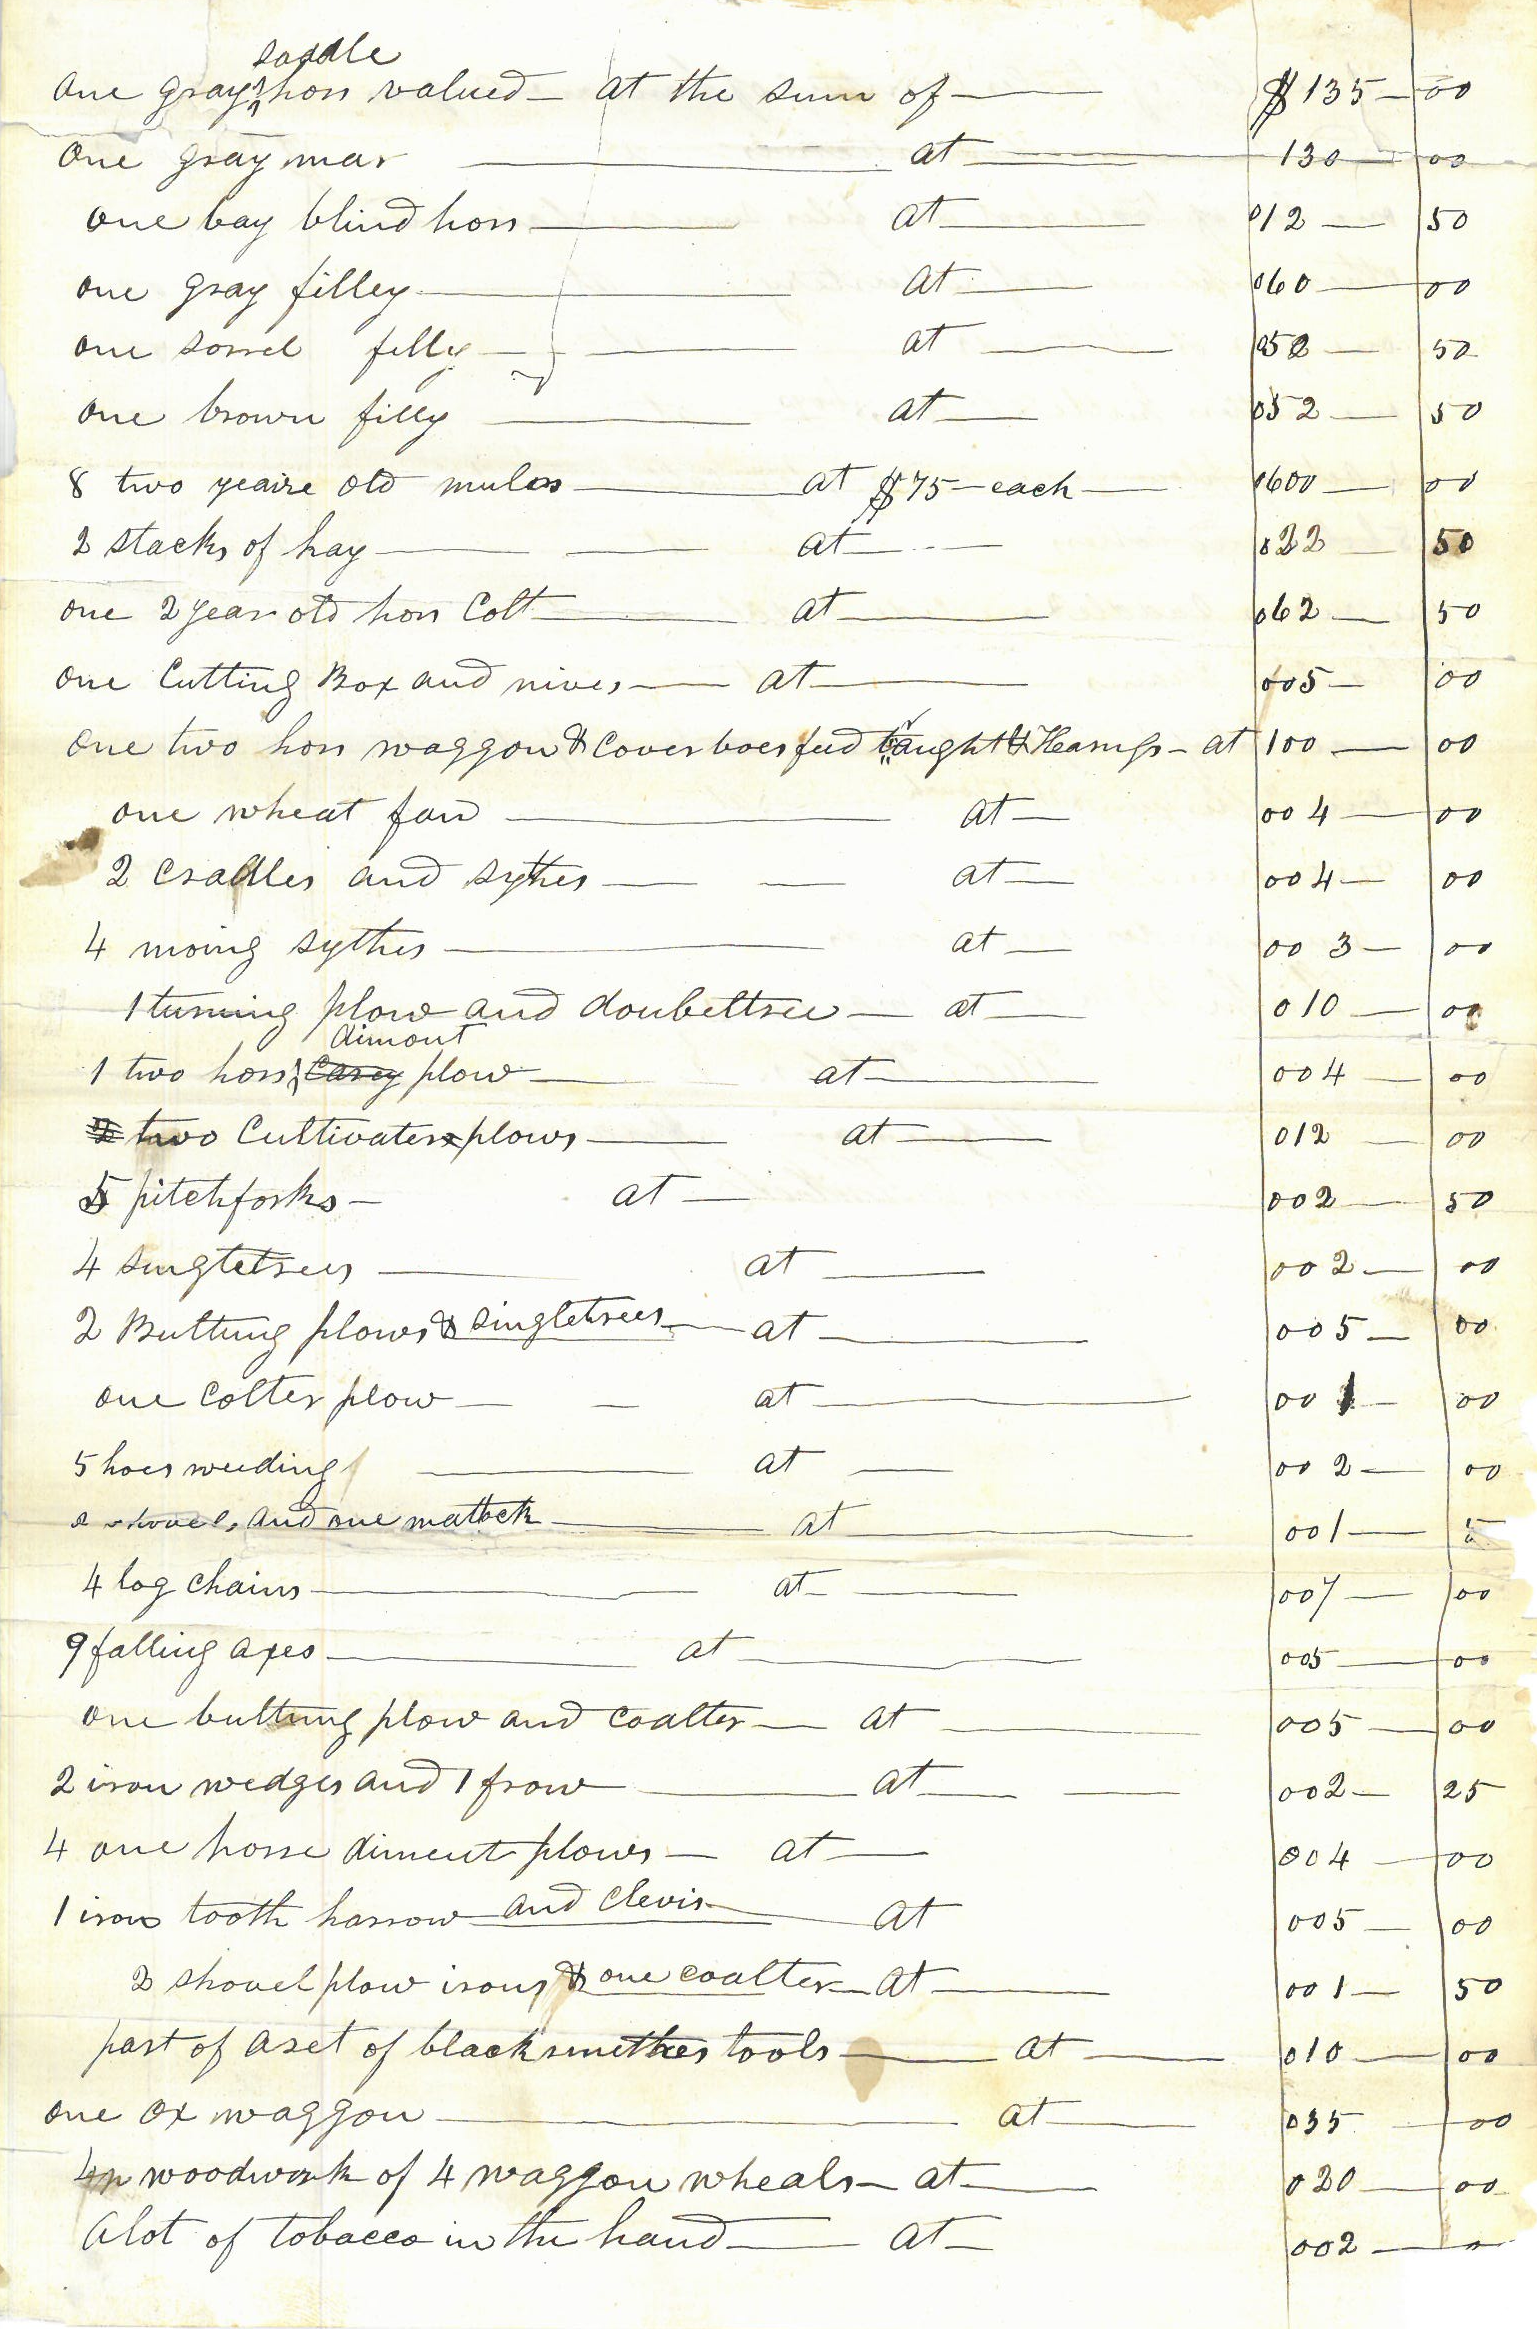 saddle
one gray ^ hors valued — at the sum of — $135 — 00
one gray mar — at — 130 — 00
one bay blind hors — at — 012 — 50
one gray filley — at — 060 — 00
one sorrel filly — at — 052 — 50
one brown filly — at — 052 — 50
8 two yeaire old mules — at $75 — each — 0600 — 00
2 stacks of hay — at — 022 — 50
one 2 year old hors Colt — at — 062 — 50
one Cutting Box and nives — at — 005 — 00
one two hors waggon & Cover boes feed — at 100 — 00
one wheat fan — at — 004 — 00
2 cradles and sythes — at — 004 — 00
4 moing sythes — at — 003 — 00
1 turning plow and doubeltree — at — 010 — 00
dimont
1 two hors ^ Carey plow — at — 004 — 00
two Cultivater plows — at — 012 — 00
5 pitchforks — at — 002 — 50
4 singletrees — at — 002 — 00
2 Bulting plows & singletrees — at — 005 — 00
one Colter plow — at — 001 — 00
5 hoes weeding — at — 002 — 00
2 shovels and one mattock — at — 001 — 5
4 log chains — at — 007 — 00
9 falling axes — at — 005 — 00
one bulting plow and coalter — at — 005 — 00
2 iron wedges and 1 frow — at — 002 — 25
4 one horse diment plows — at — 004 — 00
1 iron tooth harrow and Clevis — at 005 — 00
2 shovel plow irons & one coalter — at — 001 — 50
part of a set of blacksmithes tools — at — 010 — 00
one ox waggon — at — 035 — 00
woodwork of 4 waggon wheals — at — 020 — 00
A lot of tobacco in the hand — at — 002 —